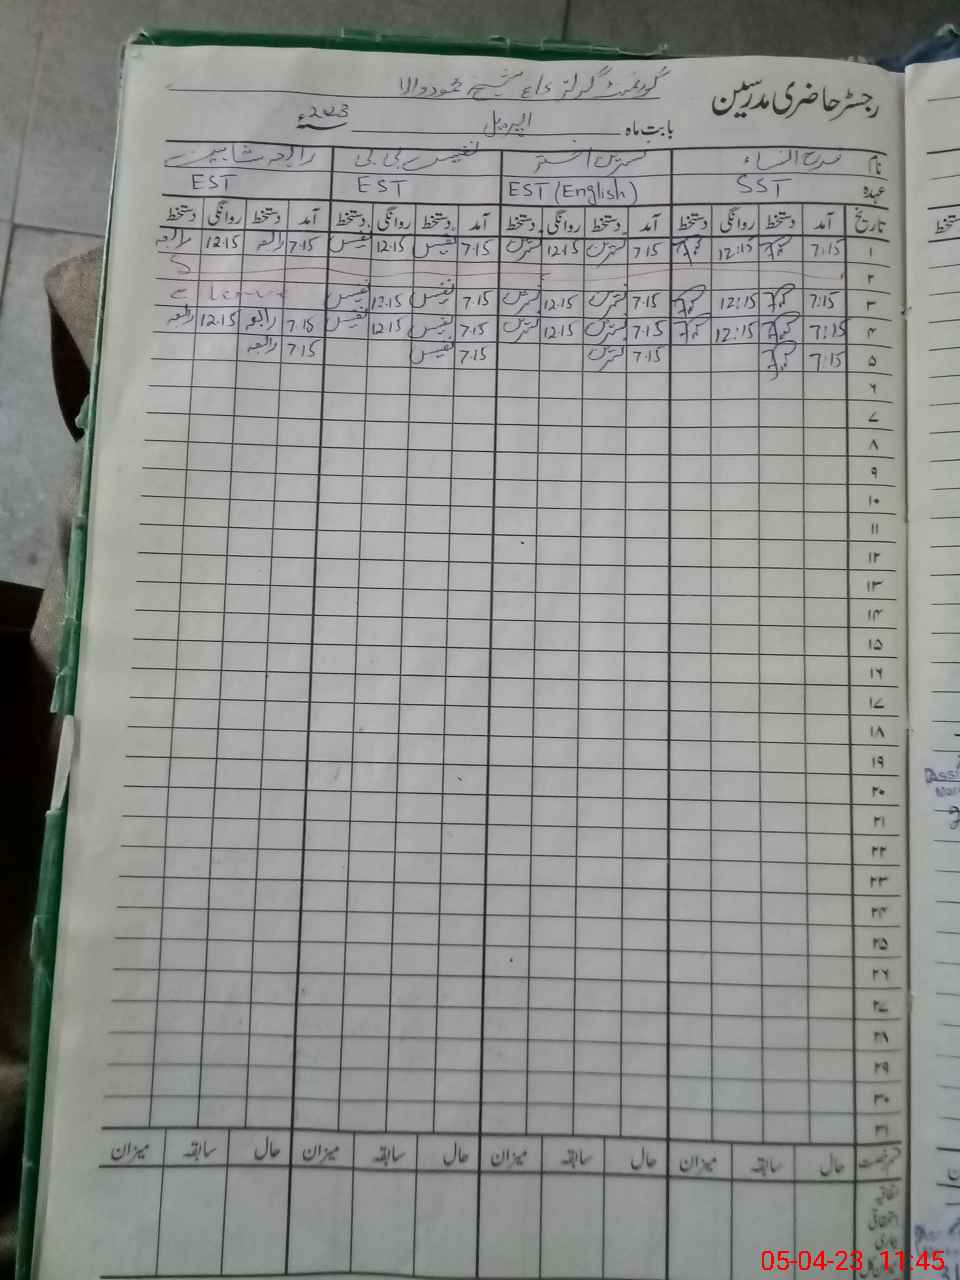 رجسٹر حاضری مدرسین
گورنمنٹ گرلز شیخ محمود والا
بابت ماہ اپریل 2023ء
نام فرح النساء نسرین اختر نفیس بی بی رابعہ شاہین
عہدہ SST EST (English) EST EST
تاریخ آمد دستخط روانگی دستخط آمد دستخط روانگی دستخط آمد دستخط روانگی دستخط آمد دستخط روانگی دستخط
۱ 7:15 12:15 7.15 نسرین 12.15 نسرین 7.15 نفیس 12.15 نفیس 7.15 رابعہ 12.15 رابعہ
۲ S
۳ 7:15 12:15 7.15 نسرین 12.15 نسرین 7.15 نفیس 12.15 نفیس Leave
۴ 7:15 12:15 7.15 نسرین 12.15 نسرین 7.15 نفیس 12.15 نفیس 7.15 رابعہ 12.15 رابعہ
۵ 7:15 7.15 نسرین 7.15 نفیس 7.15 رابعہ
۶
۷
۸
۹
۱۰
۱۱
۱۲
۱۳
۱۴
۱۵
۱۶
۱۷
۱۸
۱۹
۲۰
۲۱
۲۲
۲۳
۲۴
۲۵
۲۶
۲۷
۲۸
۲۹
۳۰
۳۱
قسم رخصت حال سابقہ میزان حال سابقہ میزان حال سابقہ میزان حال سابقہ میزان
اتفاقیہ
استحقاقی
بیماری
05-04-23 11:45